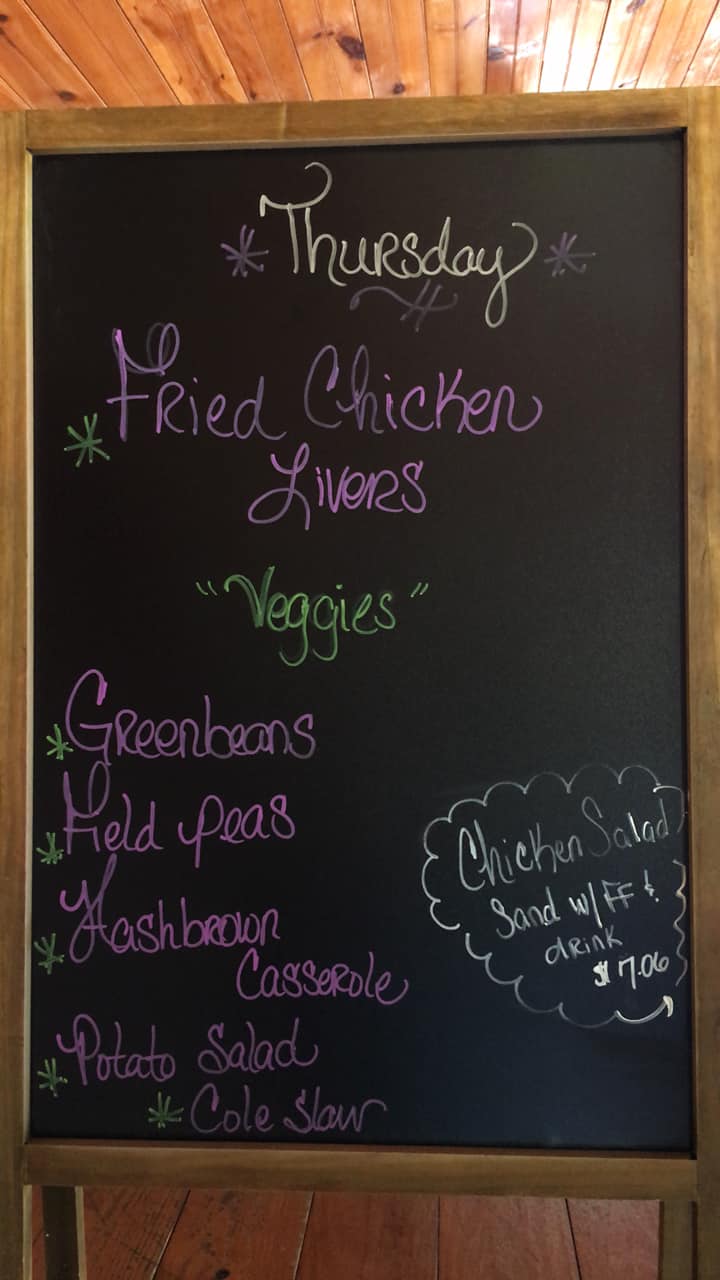 * Thursday *
* Fried Chicken
Livers
"Veggies"
* Greenbeans
* Field peas
* Hashbrown
Casserole
* Potato Salad
* Cole Slaw
Chicken Salad
Sand w/ FF &
drink
$7.06